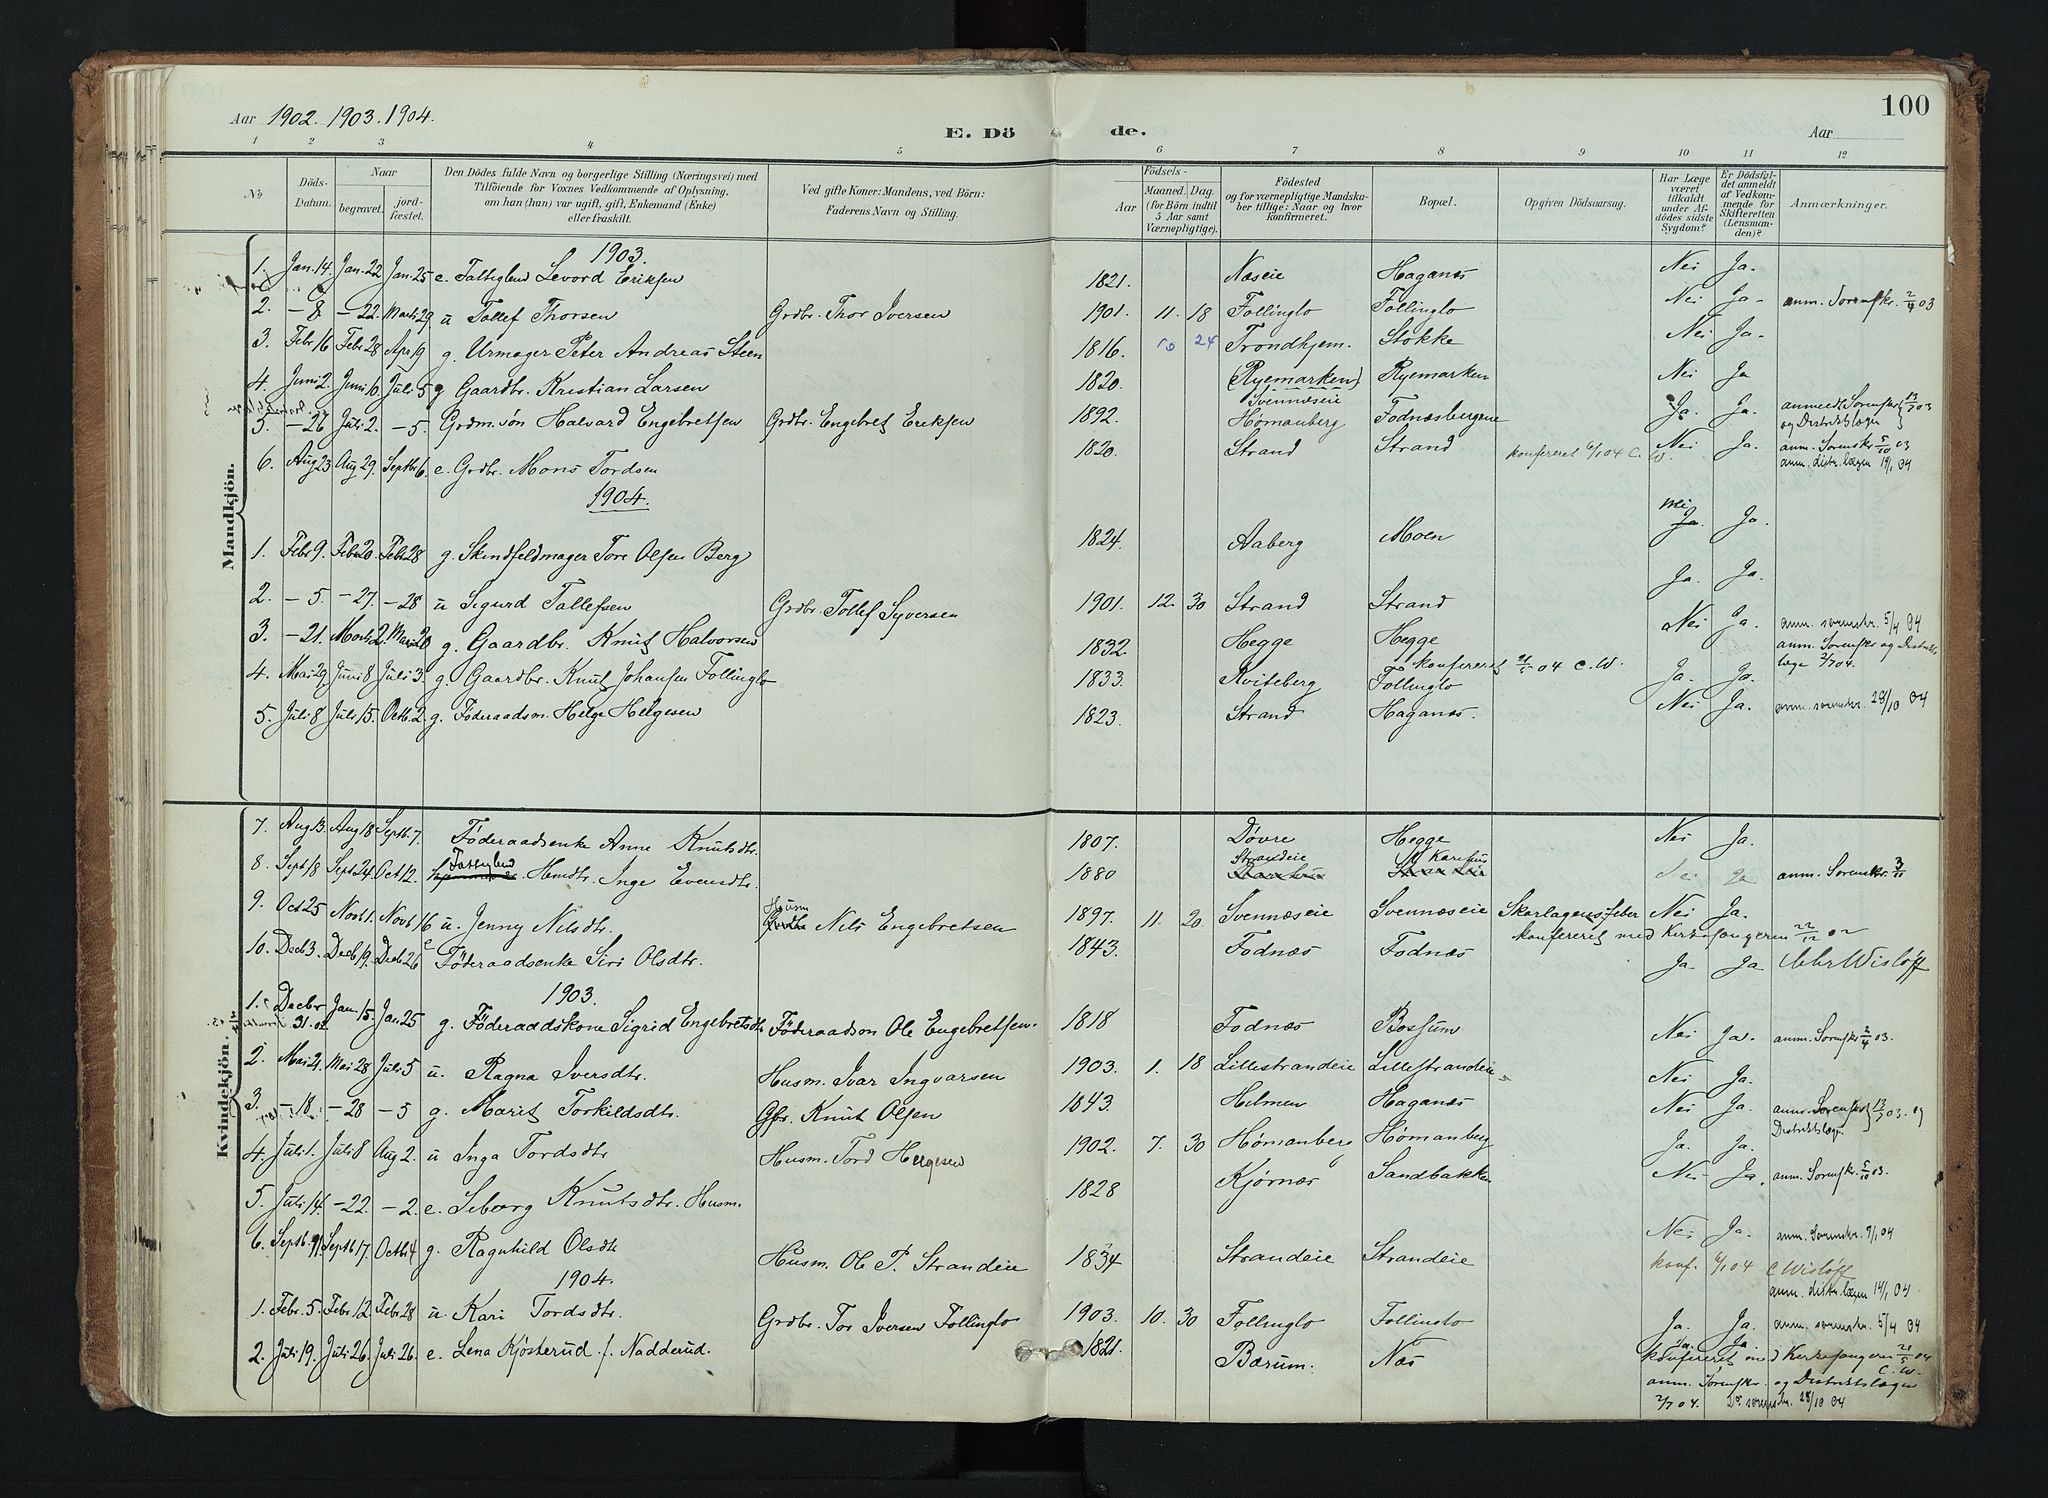 100
Aar 1902. 1903. 1904.
E. Döde.
Aar
1 2 3 4 5 6 7 8 9 10 11 12
No
Döds-Datum.
Naar begravet. jordfæstet.
Den Dödes fulde Navn og borgerlige Stilling (Næringsvei) med Tilföiende for Voxnes Vedkommende af Oplysning, om han (hun) var ugift, gift, Enkemand (Enke) eller fraskilt.
Ved gifte Koner: Mandens, ved Börn: Faderens Navn og Stilling.
Födsels-
Aar
Maaned. Dag. (for Börn indtil 5 Aar samt Værnepligtige).
Födested og for værnepligtige Mandskaber tillige: Naar og hvor konfirmeret.
Bopæl.
Opgiven Dödsaarsag.
Har Læge været tilkaldt under Afdödes sidste Sygdom?
Er Dödsfaldet anmeldt af Vedkommende for Skifteretten (Lensmanden)?
Anmærkninger.
Mandkjön.
1903.
1. Jan. 14. Jan. 22 Jan. 25 e. Fattiglem Levord Eriksen 1821. Næseie Haganæs Nei Ja.
2. – 8 – 22. Marts 29 u Tollef Thorsen Grdbr. Thor Iversen 1901. 11. 18 Follinglo Follinglo Nei Ja anm. Sorenskr. 2/4 03
3. Febr 16 Febr 28 Apr 19 g. Urmager Peter Andreas Steen 1816. 10 24 Trondhjem. Stokke Nei Ja
4. Juni 2. Juni 6. Juli 5 g Gaardbr. Kristian Larsen 1820. (Ryemarken) Ryemarken Nei Ja
5. – 26 Juli 2. – 5. Grdm.søn Halvard Engebretsen Grdbr. Engebret Eriksen 1892. Svennæseie Hømanberg Fodnæsbergene Ja. Ja. anmeldt Sorenskr 13/7 03 og Distriktslægen
6. Aug 23 Aug 29. Septbr 6 e. Grdbr. Mons Tordsen 1820. Strand Strand konfereret 6/1 04 C. W. Nei Ja. anm. Sorenskr 5/10 03 anm. distr.lægen 19/1 04
1904.
1. Febr 9. Febr 20. Febr 28 g. Skindfeldmager Tore Olsen Berg 1824. Aaberg Moen nei Ja. Ja.
2. – 5. – 27. – 28 u Sigurd Tollefsen Grdbr. Tollef Syversen 1901. 12. 30 Strand Strand Ja. Ja.
3. – 21. Marts 2. Marts 20 g. Gaardbr. Knut Halvorsen 1832. Hegge Hegge Nei Ja. anm. sorenskr. 5/4 04
konfereret 21/5 04 C. W.
4. Mai 29 Juni 8 Juli 3. g. Gaardbr. Knut Johansen Follinglo 1833. Kviteberg Follinglo Ja. Ja. anm. Sorenskr og Distriktslæge 2/7 04.
5. Juli 8 Juli 15. Octb. 2 g. Föderaadsm. Helge Helgesen 1823. Strand Haganæs. Nei Ja. anm. sorenskr. 29/10 04
Kvindekjön.
7. Aug 13. Aug 18 Septb. 7. Föderaadsenke Anne Knutsdtr. 1807. Dovre Hegge Nei Ja.
8. Sept 18 Sept 24. Oct 12. Fattiglem Hmdtr. Inge Evensdtr. 1880 Strandeie Nei Ja anm. Sorenskr. 3/11
9. Oct 25 Novb 1. Novb 16 u. Jenny Nilsdtr. Husm Nils Engebretsen 1897. 11. 20 Svennæseie Svennæseie Skarlagensfeber Nei Ja.
konfereret med Kirkesangeren 22/12 02
10. Decb 3. Decb 19. Decb 26 e Föderaadsenke Siri Olsdtr. 1843. Fodnæs Fodnæs Ja. Ja Chr Wisløff
1903.
1. Decbr 31. 02. Jan. 15. Jan 25 g. Föderaadskone Sigrid Engebretsdtr Föderaadsm Ole Engebretsen. 1818 Fodnæs Bossum Nei Ja. anm. Sorenskr 2/4 03.
2. Mai 21. Mai 28 Juli 5 u. Ragna Iversdtr. Husm. Ivar Ingvarsen 1903. 1. 18 Lillestrandeie Lillestrandeie Nei Ja.
3. – 18. – 28 – 5 g. Marit Torkildsdtr. Gbr. Knut Olsen 1843. Hilmen Haganæs Nei Ja. anm. Sorenskr 13/7 03. og Distriktslægen
4. Juli 1. Juli 8 Aug 2. u Inga Tordsdtr Husm. Tord Helgesen 1902. 7. 30 Hømanberg Hømanberg Ja. Ja.
5. Juli 14. – 22. – 2. e. Seborg Knutsdtr. Husm. 1828 Kjørnæs Sandbakken Nei Ja. anm. Sorenskr. 5/10 03.
6. Septb. 9. Septb 17. Octb 4 g. Ragnhild Olsdtr Husm. Ole P. Strandeie 1834 Strandeie Strandeie Nei Ja. anm. Sorenskr. 9/1 04
konf. 6/1 04 C Wisløff
anm. distr.lægen 19/1 04
1904.
1. Febr. 5. Febr 12. Febr 28 u. Kari Tordsdtr. Grdbr. Tor Iversen Follinglo 1903. 10. 30 Follinglo Follinglo Ja. Ja. anm. sorenskr. 5/4 04
2. Juli 19. Juli 26. Juli 26. e. Lena Kjøsterud f. Nadderud. 1821. Bærum. Næs Ja. Ja
konfereret med Kirkesangeren 21/5 04 C. W.
anm. Sorenskr. og Distriktslægen
2/7 04. Do. sorenskr. 29/10 04